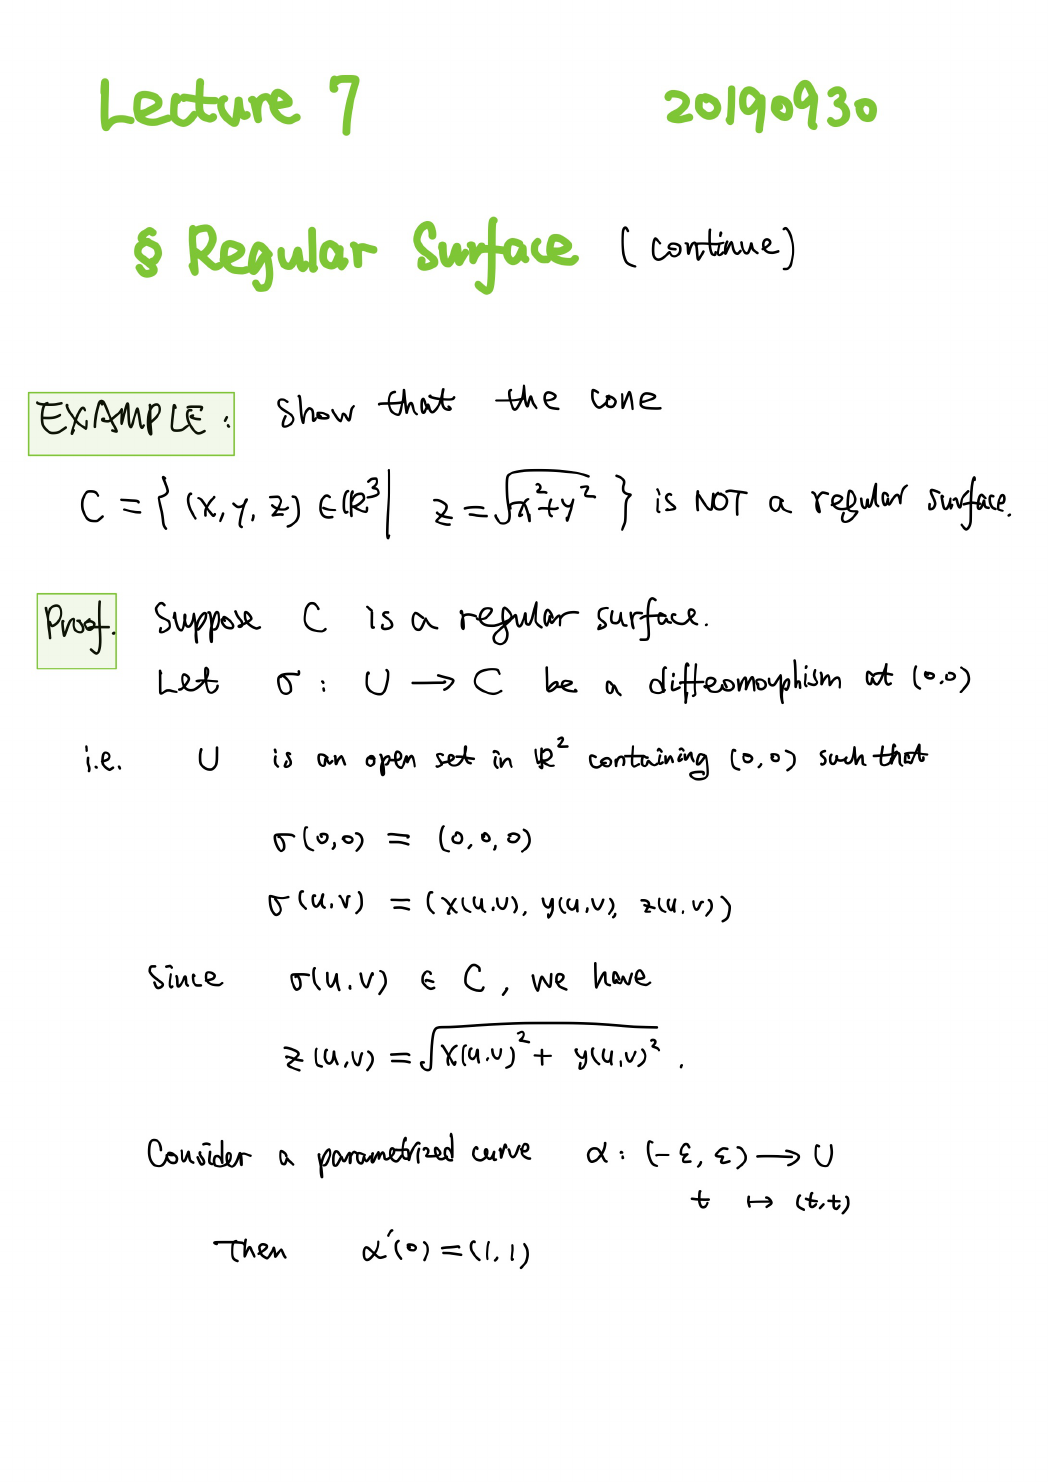 Lecture 7 20190930
§ Regular Surface (continue)
EXAMPLE: Show that the cone
C = { (x, y, z) ∈ ℝ³ | z = √(x²+y²) } is NOT a regular surface.
Proof. Suppose C is a regular surface.
Let σ : U → C be a diffeomorphism at (0,0)
i.e. U is an open set in ℝ² containing (0,0) such that
σ(0,0) = (0,0,0)
σ(u,v) = (x(u,v), y(u,v), z(u,v))
Since σ(u,v) ∈ C, we have
z(u,v) = √(x(u,v)² + y(u,v)²) .
Consider a parametrized curve α : (-ε, ε) → U
t ↦ (t,t)
Then α'(0) = (1,1)